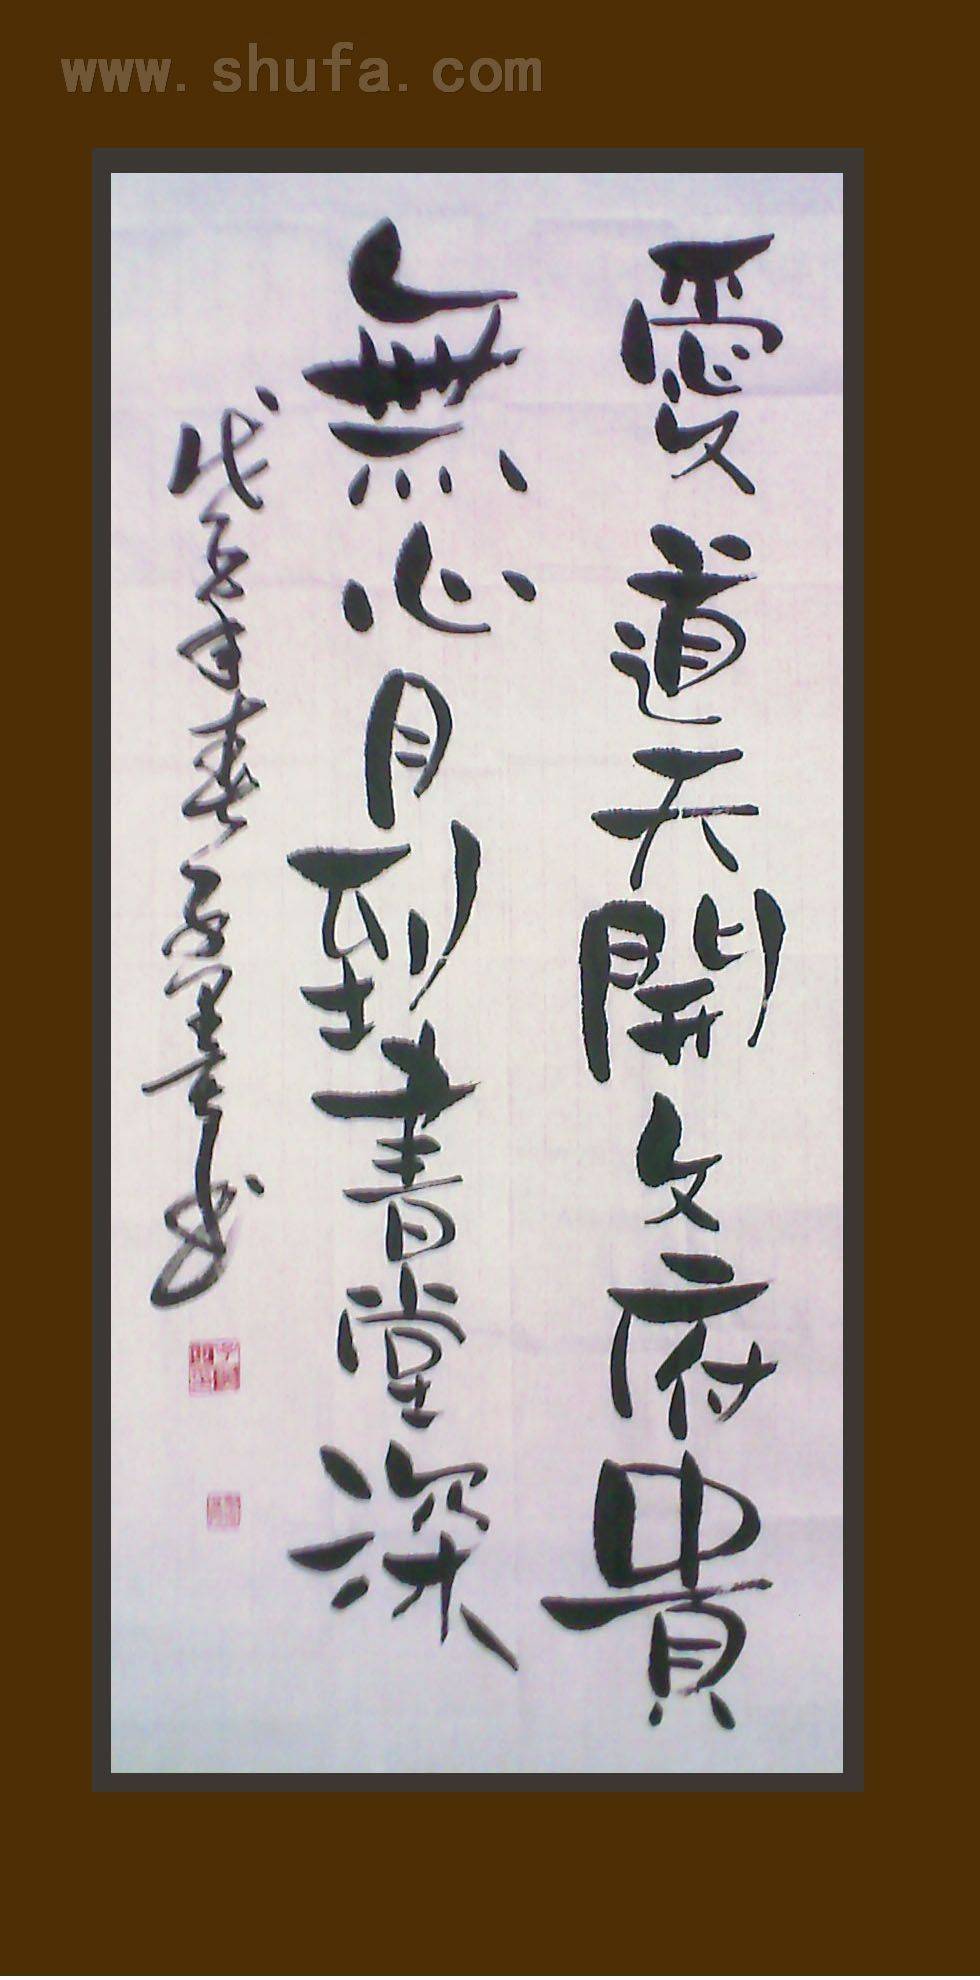 www.shufa.com
愛道天開文府貴
無心月到書堂深
戊子年春
書